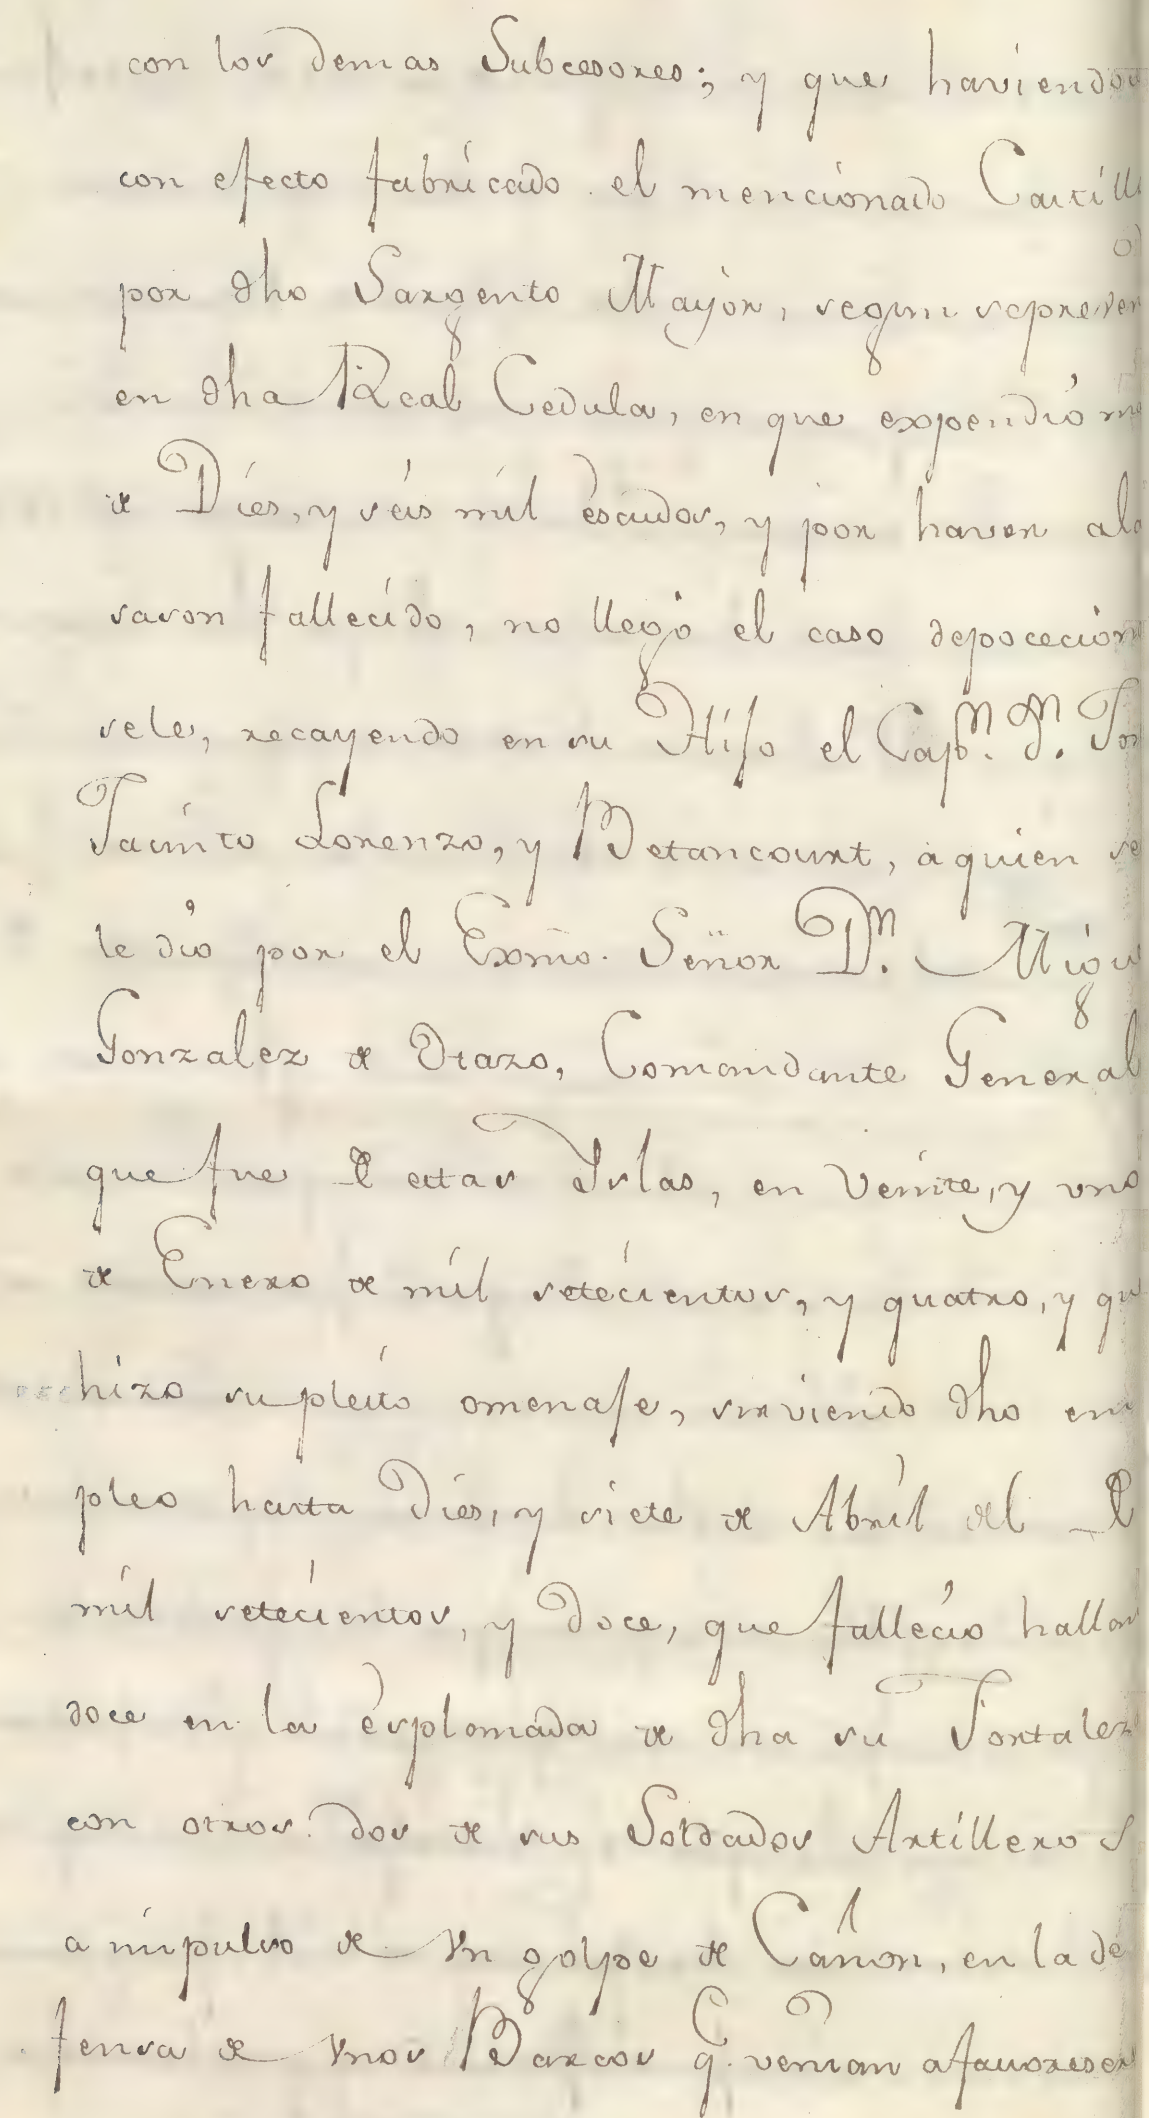 con los demas Subcesores; y que haviendo
con efecto fabricado el mencionado Castill
por dho Sargento Mayor, segun sepreven
en dha Real Cedula, en que expendió ma
de Dies, y seis mil escudos, y por haver ala
sason fallecido, no llegó el caso depocecion
sele, recayendo en su Hijo el Capn. Dn.
Jacinto Lorenzo, y Betancourt, aquien se
le dió por el Exmo. Señor Dn. Migu
Gonzalez de Otazo, Comandante General
que fue de estas Yslas, en veinte, y uno
de Enero de mil setecientos, y quatro, y qu
hizo supleito omenaje, sirviendo dho em
pleo hasta dies, y siete de Abril del de
mil setecientos, y doce, que fallecio hallan
doce en la esplomada de dha su Fortalez
con otros dos de sus Soldados Artilleros
a impulso de Vn golpe de Cañon, en la de
fensa de Vnos Barcos q. venian afavoreser